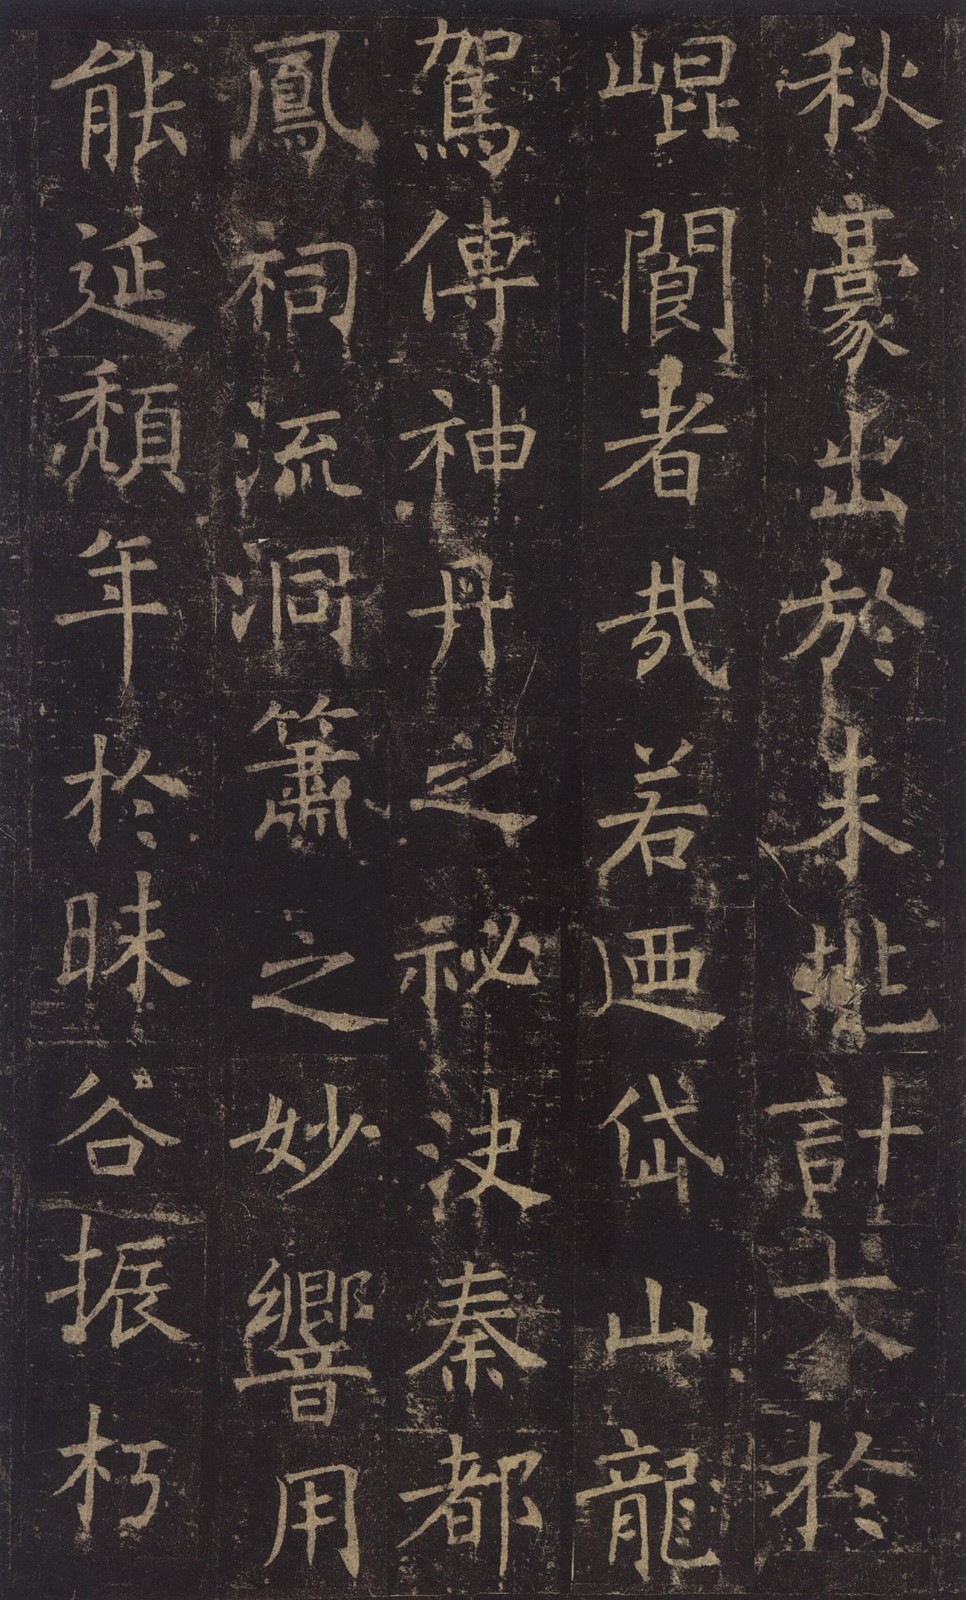 秋豪出於朱桃計大於
崐閬者哉若迺岱山龍
駕傳神丹之祕決秦都
鳳祠流洞簫之妙響用
能延頹年於昧谷振朽